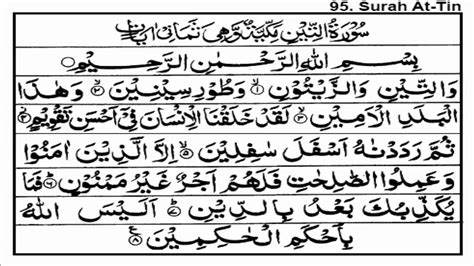 95. Surah At-Tin
سُوْرَةُ التِّيْنِ مَكِّيَّةٌ وَّهِيَ ثَمَانِيْ اٰيَاتٍ
بِسْمِ اللّٰهِ الرَّحْمٰنِ الرَّحِيْمِ
وَالتِّيْنِ وَالزَّيْتُوْنِ ۙ﴿۱﴾ وَطُوْرِ سِيْنِيْنَ ۙ﴿۲﴾ وَهٰذَا
الْبَلَدِ الْاَمِيْنِ ۙ﴿۳﴾ لَقَدْ خَلَقْنَا الْاِنْسَانَ فِيْۤ اَحْسَنِ تَقْوِيْمٍ ۫﴿۴﴾
ثُمَّ رَدَدْنٰهُ اَسْفَلَ سٰفِلِيْنَ ۙ﴿۵﴾ اِلَّا الَّذِيْنَ اٰمَنُوْا
وَعَمِلُوا الصّٰلِحٰتِ فَلَهُمْ اَجْرٌ غَيْرُ مَمْنُوْنٍ ؕ﴿۶﴾ فَمَا
يُكَذِّبُكَ بَعْدُ بِالدِّيْنِ ؕ﴿۷﴾ اَلَيْسَ اللّٰهُ
بِاَحْكَمِ الْحٰكِمِيْنَ ﴿۸﴾ ع